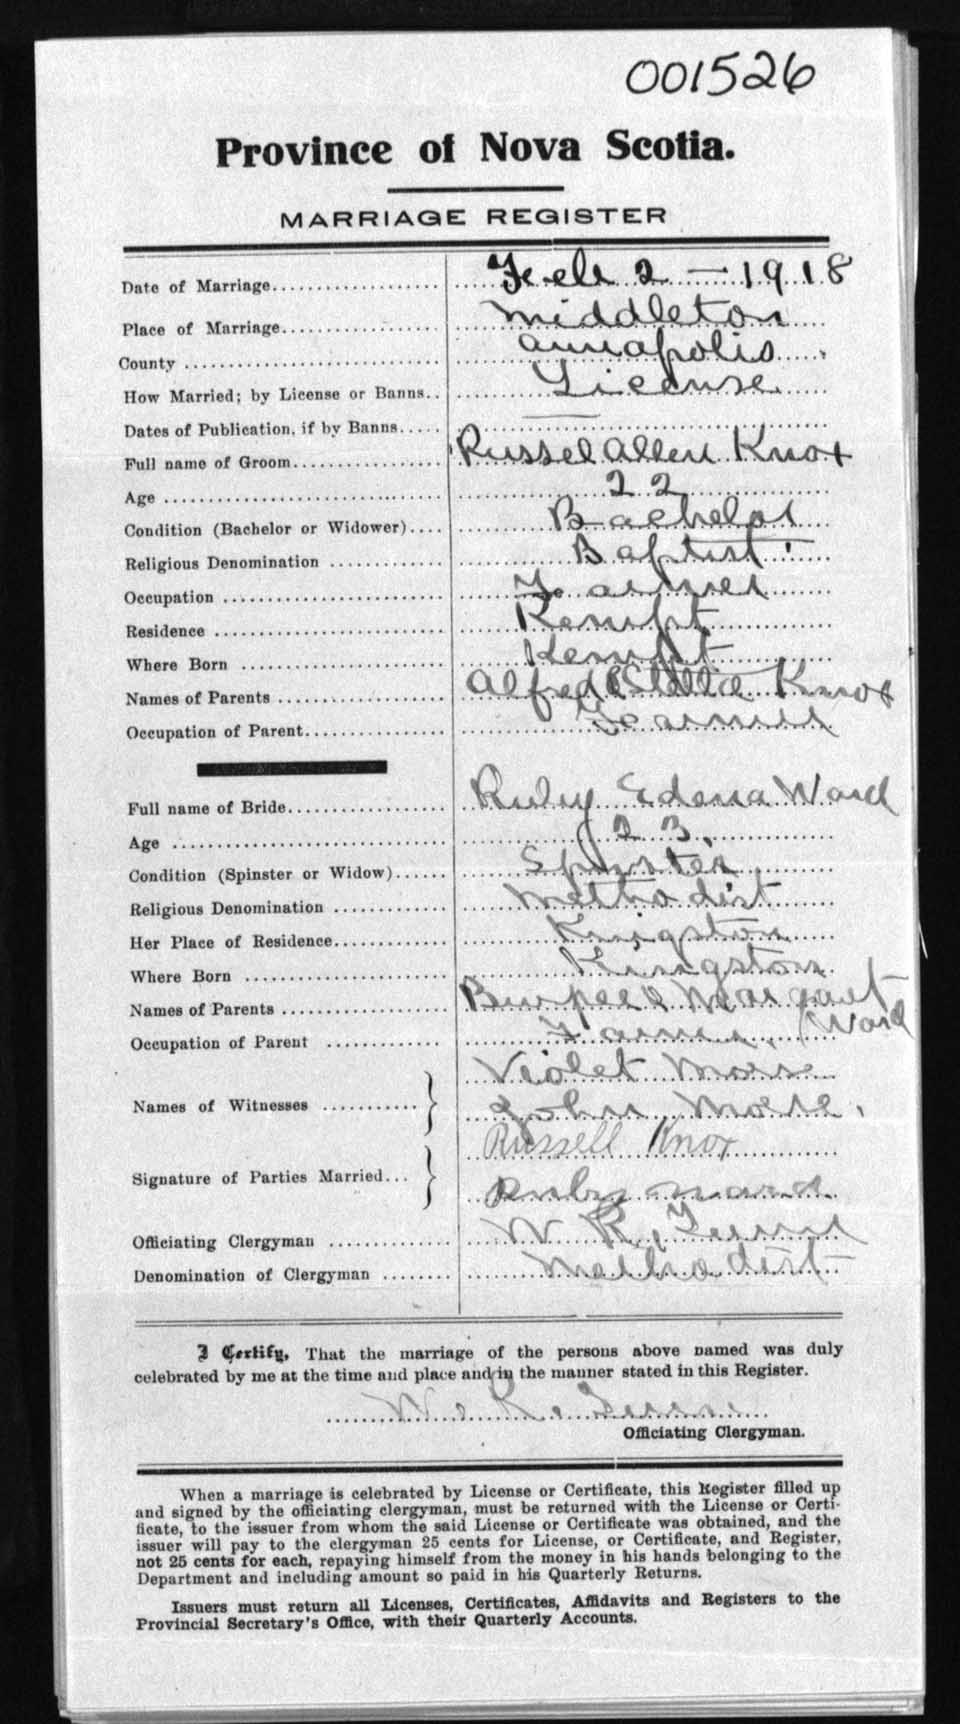 001526
Province of Nova Scotia.
MARRIAGE REGISTER
Date of Marriage.................... Feb 2 — 1918
Place of Marriage................... Middleton
County .............................. Annapolis
How Married; by License or Banns.. License
Dates of Publication, if by Banns..... —
Full name of Groom.................. Russel Allen Knox
Age .................................. 22
Condition (Bachelor or Widower).... Bachelor
Religious Denomination .............. Baptist
Occupation .......................... Farmer
Residence ........................... Kempt
Where Born ......................... Kempt
Names of Parents .................... Alfred & Stella Knox
Occupation of Parent................. Farmer
Full name of Bride................... Ruby Edena Ward
Age .................................. 23
Condition (Spinster or Widow)...... Spinster
Religious Denomination .............. Methodist
Her Place of Residence.............. Kingston
Where Born ......................... Kingston
Names of Parents .................... Burpee & Margaret Ward
Occupation of Parent ............... Farmer
Names of Witnesses ............ Violet
John
Signature of Parties Married... Russell Knox
Ruby Ward
Officiating Clergyman ............... W. R.
Denomination of Clergyman ........ Methodist
I Certify, That the marriage of the persons above named was duly
celebrated by me at the time and place and in the manner stated in this Register.
W. R.
Officiating Clergyman.
When a marriage is celebrated by License or Certificate, this Register filled up
and signed by the officiating clergyman, must be returned with the License or Certi-
ficate, to the issuer from whom the said License or Certificate was obtained, and the
issuer will pay to the clergyman 25 cents for License, or Certificate, and Register,
not 25 cents for each, repaying himself from the money in his hands belonging to the
Department and including amount so paid in his Quarterly Returns.
Issuers must return all Licenses, Certificates, Affidavits and Registers to the
Provincial Secretary's Office, with their Quarterly Accounts.